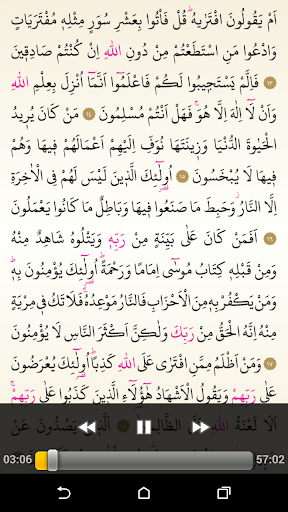 اَمْ يَقُولُونَ افْتَرٰيهُ قُلْ فَأْتُوا بِعَشْرِ سُوَرٍ مِثْلِهٖ مُفْتَرَيَاتٍ
وَادْعُوا مَنِ اسْتَطَعْتُمْ مِنْ دُونِ اللّٰهِ اِنْ كُنْتُمْ صَادِقٖينَ
﴿١٣﴾ فَاِلَّمْ يَسْتَجٖيبُوا لَكُمْ فَاعْلَمُٓوا اَنَّمَٓا اُنْزِلَ بِعِلْمِ اللّٰهِ
وَاَنْ لَٓا اِلٰهَ اِلَّا هُوَ فَهَلْ اَنْتُمْ مُسْلِمُونَ ﴿١٤﴾ مَنْ كَانَ يُرٖيدُ
الْحَيٰوةَ الدُّنْيَا وَزٖينَتَهَا نُوَفِّ اِلَيْهِمْ اَعْمَالَهُمْ فٖيهَا وَهُمْ
فٖيهَا لَا يُبْخَسُونَ ﴿١٥﴾ اُو۬لٰٓئِكَ الَّذٖينَ لَيْسَ لَهُمْ فِي الْاٰخِرَةِ
اِلَّا النَّارُ وَحَبِطَ مَا صَنَعُوا فٖيهَا وَبَاطِلٌ مَا كَانُوا يَعْمَلُونَ
﴿١٦﴾ اَفَمَنْ كَانَ عَلٰى بَيِّنَةٍ مِنْ رَبِّهٖ وَيَتْلُوهُ شَاهِدٌ مِنْهُ
وَمِنْ قَبْلِهٖ كِتَابُ مُوسٰٓى اِمَامًا وَرَحْمَةً اُو۬لٰٓئِكَ يُؤْمِنُونَ بِهٖ
وَمَنْ يَكْفُرْ بِهٖ مِنَ الْاَحْزَابِ فَالنَّارُ مَوْعِدُهُ فَلَا تَكُ فٖي مِرْيَةٍ
مِنْهُ اِنَّهُ الْحَقُّ مِنْ رَبِّكَ وَلٰكِنَّ اَكْثَرَ النَّاسِ لَا يُؤْمِنُونَ
﴿١٧﴾ وَمَنْ اَظْلَمُ مِمَّنِ افْتَرٰى عَلَى اللّٰهِ كَذِبًا اُو۬لٰٓئِكَ يُعْرَضُونَ
عَلٰى رَبِّهِمْ وَيَقُولُ الْاَشْهَادُ هٰٓؤُ۬لَٓاءِ الَّذٖينَ كَذَبُوا عَلٰى رَبِّهِمْ
اَلَا لَعْنَةُ اللّٰهِ عَلَى الظَّالِمٖينَ اَلَّذٖينَ يَصُدُّونَ عَنْ
03:06 57:02